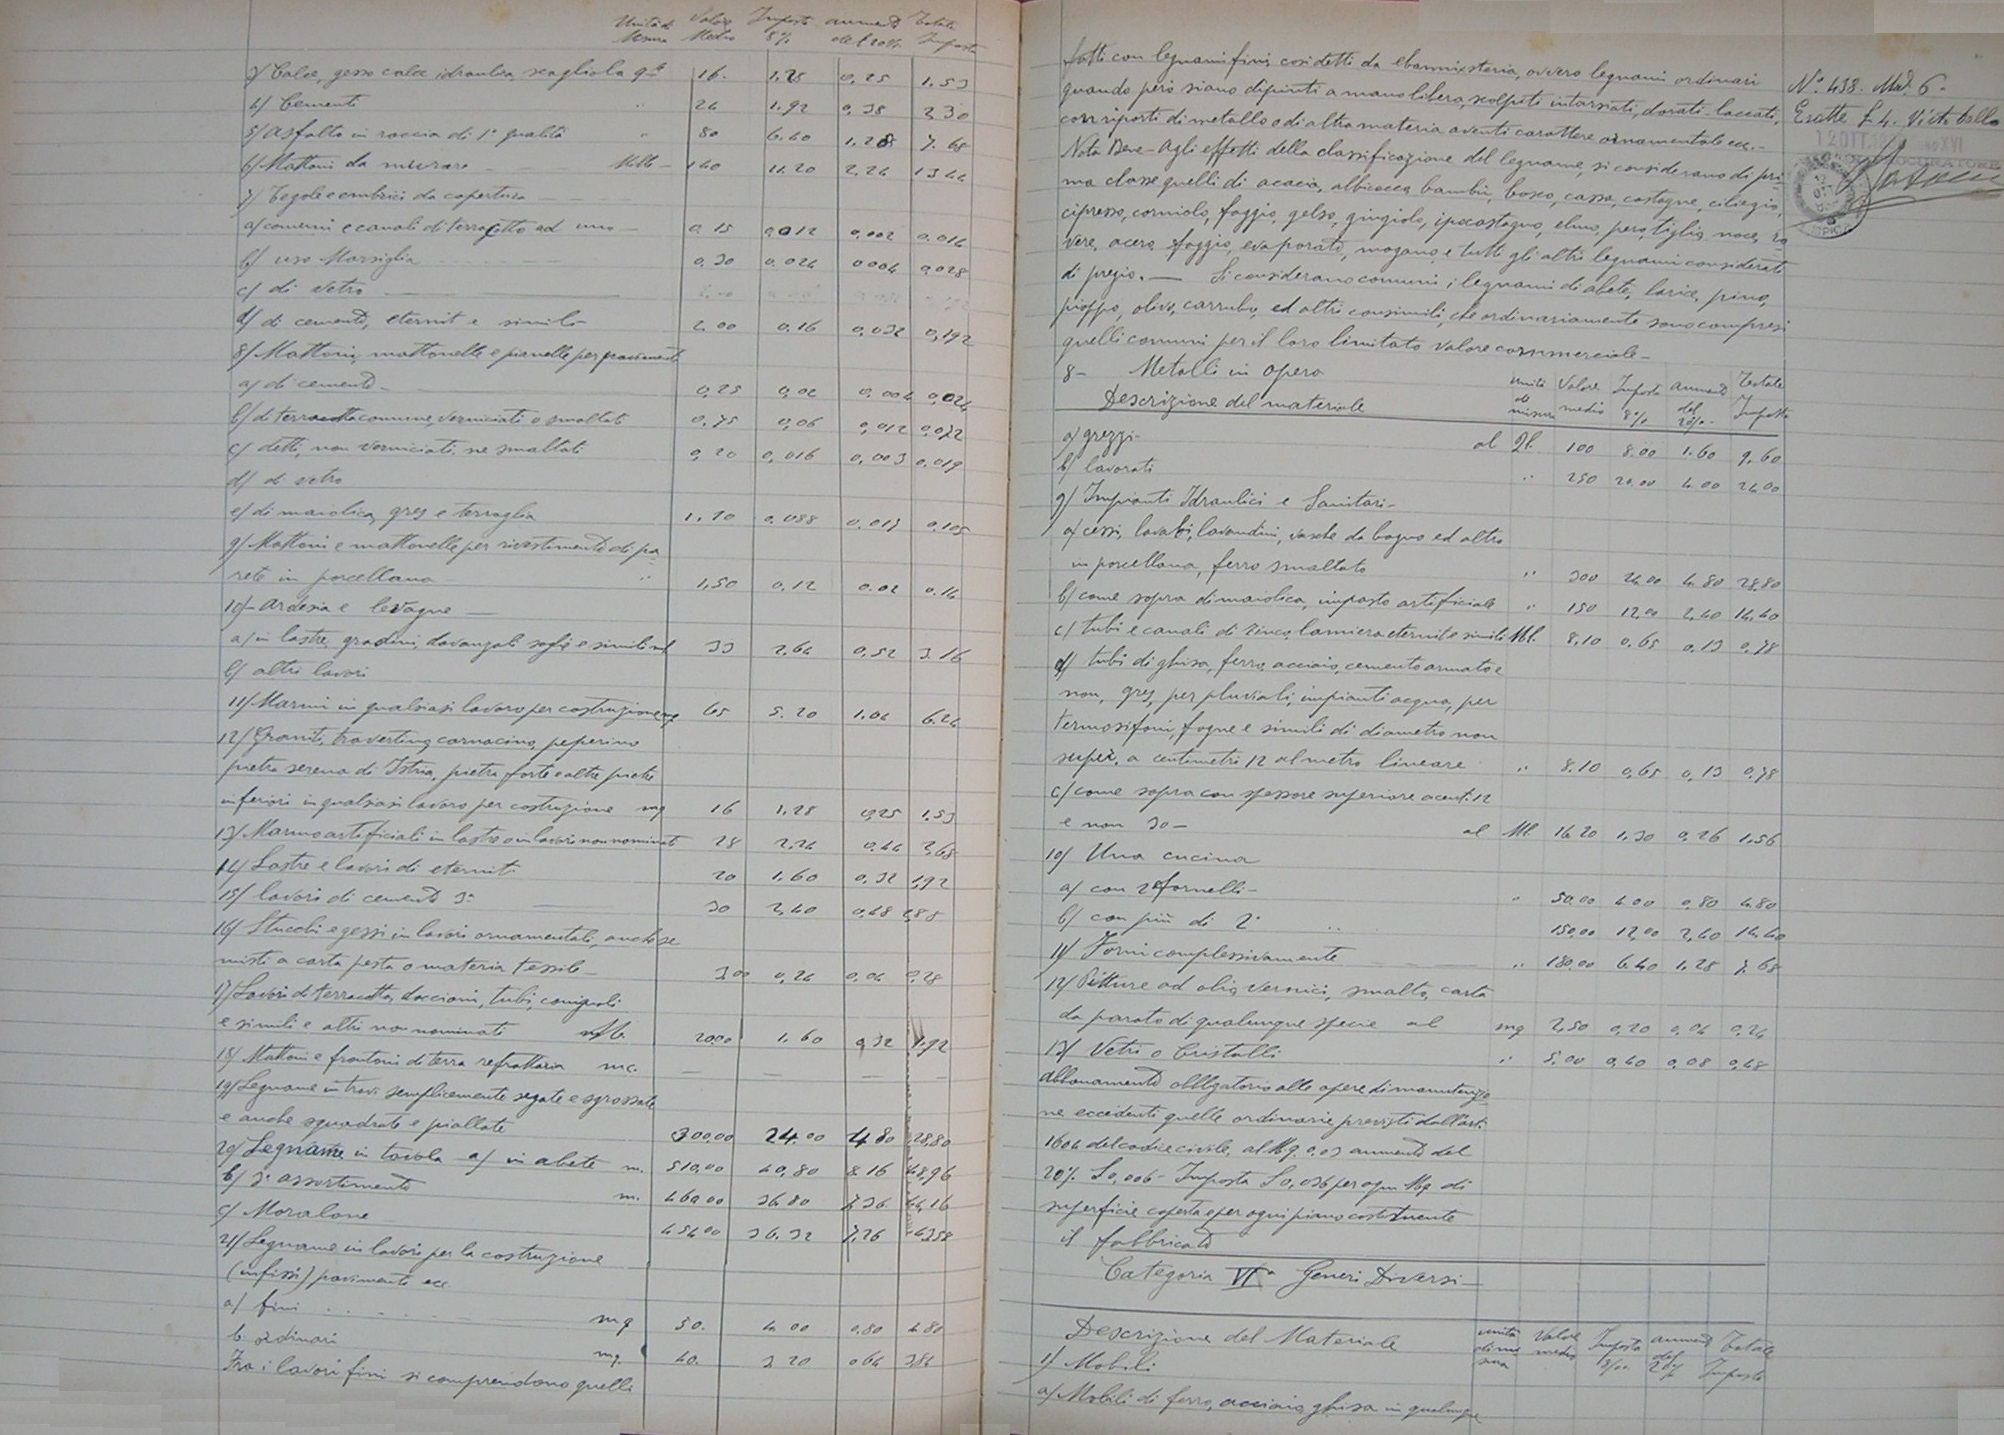 Unità di Valore Imposta aumento Totale
Misura Medio 8% del 20% Imposta
3/ Calce, gesso calce idraulica scagliola qle 16. 1,28 0,25 1,53
4/ Cementi " 24 1,92 0,38 2 30
5/ Asfalto in roccia di 1a qualità " 80 6.40 1,28 7.68
6/ Mattoni da murare Mille 140 11.20 2,24 13 44
7/ Tegole e embrici da copertura
a/ comuni e canali di terracotta ad uno 0.15 0,012 0,002 0,014
b/ uso Marsiglia 0.30 0.024 0.004 0,028
c/ di vetro
d/ di cemento, eternit e simili 2,00 0,16 0,032 0,192
8/ Mattoni, mattonelle e pianelle per pavimenti
a/ di cemento 0,25 0,02 0,004 0,024
b/ di terracotta comune, verniciati o smaltati 0,75 0,06 0,012 0,072
c/ detti, non verniciati ne smaltati 0,20 0,016 0,003 0,019
d/ di vetro
e/ di maiolica, gres e terraglia 1,10 0,088 0.017 0,105
9/ Mattoni e mattonelle per rivestimento di pa
rete in porcellana " 1,50 0,12 0.02 0.14
10/ Ardesia e lavagne
a/ in lastre, gradini, davanzali soglie e simili 33 2,64 0,52 3.16
b/ altri lavori
11/ Marmi in qualsiasi lavoro per costruzione mq 65 5.20 1.04 6.24
12/ Graniti, travertino, carnacino, peperino
pietra serena di Istria, pietra forte e altre pietre
inferiori in qualsiasi lavoro per costruzione mq 16 1,28 0,25 1,53
13/ Marmo artificiali in lastre o in lavori non nominati 28 2,24 0,44 2,68
14/ Lastre e lavori di eterniti 20 1.60 0,32 1,92
15/ lavori di cemento 30 2,40 0,48 2,88
16/ Stucchi e gessi in lavori ornamentali, anche se
misti a carta pesta o materia tessile 3 00 0,24 0,04 0,28
17/ Lavori di terracotta, doccioni, tubi, comignoli
e simili e altri non nominati 20,00 1,60 0,32 1,92
18/ Mattoni e frontoni di terra refrattaria mc.
19/ Legname in travi semplicemente segate e sgrossate
e anche squadrate e piallate 300,00 24.00 4 80 28,80
20/ Legname in tavola a/ in abete m. 510,00 40,80 8.16 48,96
b/ 3° assortimento m. 460.00 36.80 7,36 44,16
c/ Moralone 454.00 36.32 7,26 43,58
21/ Legname in lavori per la costruzione
(infissi) pavimenti ecc.
a/ fini mq 50. 4.00 0,80 4.80
b. ordinari mq. 40. 3,20 0 64 3,84
Fra i lavori fini si comprendono quelli
fatti con legnami fini, cosi detti da ebanisteria, ovvero legnami ordinari
quando però siano dipinti a mano libera, scolpiti intarsiati, dorati laccati,
con riporti di metallo o di altra materia aventi carattere ornamentale ecc.-
Nota Bene- Agli effetti della classificazione del legname, si considerano di pri-
ma classe quelli di acacia, albicocco, bambù, bosso, cassa, castagno, ciliegio,
cipresso, corniolo, faggio, gelso, giuggiolo, ipocastagno, elmo, pero, tiglio, noce, ro-
vere, acero, faggio, evaporato, mogano, e tutti gli altri legnami considerati
di pregio.- Si considerano comuni i legnami di abete, larice, pino,
pioppo, olivo, carrubo, ed altri consimili, che ordinariamente sono compresi
quelli comuni per il loro limitato valore commerciale-
8- Metalli in opera
Descrizione del materiale unità di misura Valore medio Imposta 8% aumento del 20% Totale Imposta
a/ grezzi- al Ql. 100 8.00 1.60 9.60
b/ lavorati " 250 20.00 4.00 24.00
9/ Impianti Idraulici e Sanitari-
a/ cessi, lavabi, lavandini, vasche da bagno ed altro
in porcellana, ferro smaltato " 300 24.00 4.80 28,80
b/ come sopra di maiolica, imposto artificiale " 150 12,00 2,40 14,40
c/ tubi e canali di zinco lamiera eternit e simili Ml. 8.10 0,65 0,13 0,78
d/ tubi di ghisa, ferro, acciaio, cemento armato e
non, gres, per pluviali, impianti acqua, per
termosifoni, fogne e simili di diametro non
super. a centimetri 12 al metro lineare " 8.10 0,65 0,13 0,78
c/ come sopra con spessore superiore a cent. 12
e non 30- al Ml. 16.20 1,30 0,26 1,56
10/ Una cucina
a/ con 2 fornelli- " 50,00 4.00 0,80 4.80
b/ con più di 2 150,00 12,00 2,40 14,40
11/ Forni complessivamente " 180,00 6.40 1,28 7.68
12/ Pitture ad olio, vernici, smalto, carta
da parato di qualunque specie al mq 2,50 0,20 0,04 0,24
13/ Vetri o Cristalli " 5.00 0,40 0,08 0,48
Abbonamento obbligatorio alle opere di manutenzio
ne eccedenti quelle ordinarie previsti dall'art.
1604 del codice civile, al Mq. 0,03 aumento del
20% L 0,006- Imposta L 0,036 per ogni Mq di
superficie coperta e per ogni piano costituente
il fabbricato
Categoria VIa Generi Diversi-
Descrizione del Materiale unità di mi sura Valore medio Imposta 8% aument del 20% Totale Imposta
1) Mobili
a/ Mobili di ferro, acciaio, ghisa in qualunque
N° 438. Mod. 6-
Esatte L 4. Visto bollo
12 OTT. XVI
PROCURATORE